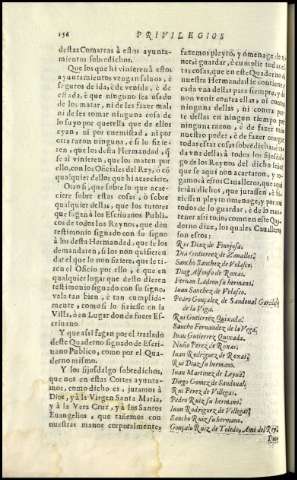 156 PRIVILEGIOS
destas Comarcas à estos ayunta-
mientos sobredichos.
Que los que hi vinieren à estos
ayuntamientos vengan saluos, è
seguros de ida, è de venida, è de
estada, è que ninguno sea osado
de los matar, ni de les fazer mal,
ni de les tomar ninguna cosa de
lo suyo por querella que de ellos
ayan, ni por enemistad, ni por
otra razon ninguna, è si lo fizie-
ren, que los desta Hermandad, q̃
se al vinieren, que los maten por
ello, con los Oficiales del Rey, ò en
qualquier dellos que hi acaeciere.
Otrosi, que sobre lo que acae-
ciere sobre estas cosas, ò sobre
qualquier dellas, que los tuerto
que signan à los Escriuanos Publi-
cos de todos los Reynos, que den
testimonio signado con su signo
à los desta Hermandad, que se les
demandaren, si los non quisieren
dar el que lo non fiziere, que le ti-
ren el Oficio por ello, è que en
qualquier lugar que desto dieren
testimonio signado con su signo
vala tan bien, è tan cumplida-
mente como si lo fiziesse en la
Villa, ò en Lugar don de fuere Es-
criuano.
Y que assi fagan por el traslado
deste Quaderno signado de Escri-
uano Publico, como por el Qua-
derno mismo.
Y los fijosdalgo sobredichos,
que nos en estas Cortes ayunta-
mos, como dicho es, juramos à
Dios, y à la Virgen Santa Maria,
y à la Vera Cruz, y à los Santos
Euangelios, que tañemos con
nuestras manos corporalmente,
fazemos pleyto, y omenage de te-
ner, è guardar, è cumplir todas es-
tas cosas, que en este Quaderno de
nuestra Hermandad se contienen,
cada vna dellas para siempre, y de
non venir contra ellas, ni contra
ninguna dellas en ningun tiempo, ni por
ninguna razon, è de fazer todo
nuestro poder, è de fazer tener
todas estas cosas sobredichas, è ca-
da vna dellas à todos los fijosdal-
go de los Reynos del dicho señor
que se aqui non acaecieron, y to-
mamos à estos Caualleros, que aqui
serán dichos, que jurassen, è hi-
ziessen pleyto omenage, y por nos
todos de tener, è guardar, è de man-
tener assi todo, como en este Qua-
derno dize, los quales Caualleros
son estos:
Rui Diaz de Finojosa.
Dia Gutierrez de Zauallos.
Sancho Sanchez de Velasco.
Dieg Alfonso de Roxas.
Fernan Ladron su hermano.
Iuan Sanchez de Velasco.
Pedro Gonçalez de Sandoual Garcilasso
de la Vega.
Rui Gutierrez Quixada.
Sancho Fernandez de la Vega.
Iuan Gutierrez Quixada.
Nuño Perez de Roxas.
Iuan Rodriguez de Roxas.
Rui Diaz su hermano.
Iuan Martinez de Leyua.
Diego Gomez de Sandoual.
Rui Perez de Villegas.
Pedro Ruiz su hermano.
Iuan Rodriguez de Villegas.
Sancho Ruiz su hermano.
Gonçalo Ruiz de Toledo, Amo del Rey.